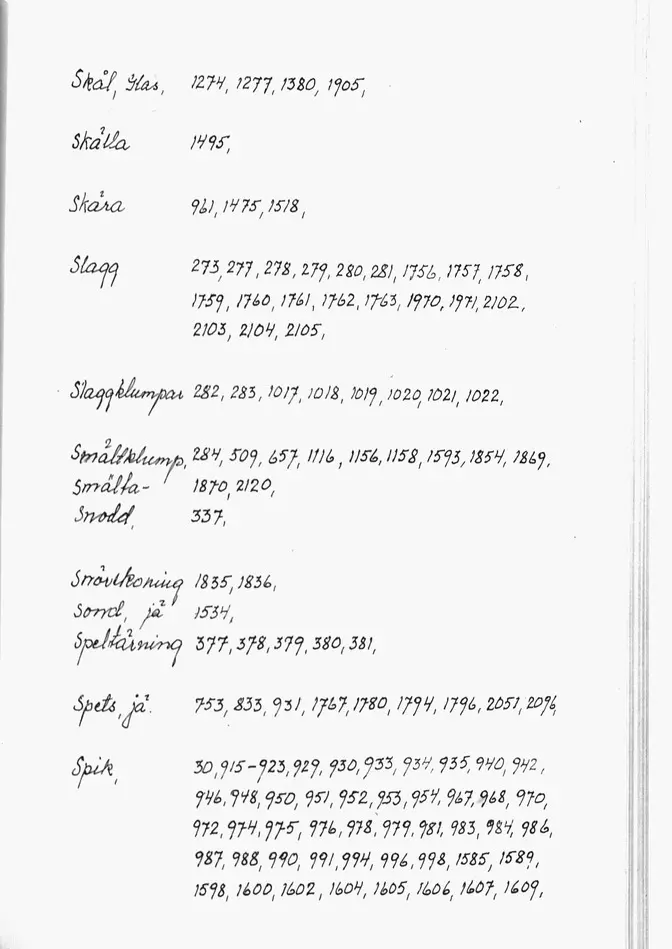 Skål, Glas, 1274, 1277, 1380, 1905,
Skälla 1495,
Skära 961, 1475, 1518,
Slagg 273, 277, 278, 279, 280, 281, 1756, 1757, 1758,
1759, 1760, 1761, 1762, 1763, 1970, 1971, 2102,
2103, 2104, 2105,
Slaggklumpar 282, 283, 1017, 1018, 1019, 1020, 1021, 1022,
Smältklump, 284, 509, 657, 1116, 1156, 1158, 1593, 1854, 1869,
Smälta- 1870, 2120,
Snodd, 337,
Snörtkoning 1835, 1836,
Sond, jä 1534,
Speltärning 377, 378, 379, 380, 381,
Spets, jä. 753, 833, 931, 1767, 1780, 1794, 1796, 2051, 2096,
Spik, 30, 915-923, 929, 930, 933, 934, 935, 940, 942,
946, 948, 950, 951, 952, 953, 954, 967, 968, 970,
972, 974, 975, 976, 978, 979, 981, 983, 984, 986,
987, 988, 990, 991, 994, 996, 998, 1585, 1589,
1598, 1600, 1602, 1604, 1605, 1606, 1607, 1609,